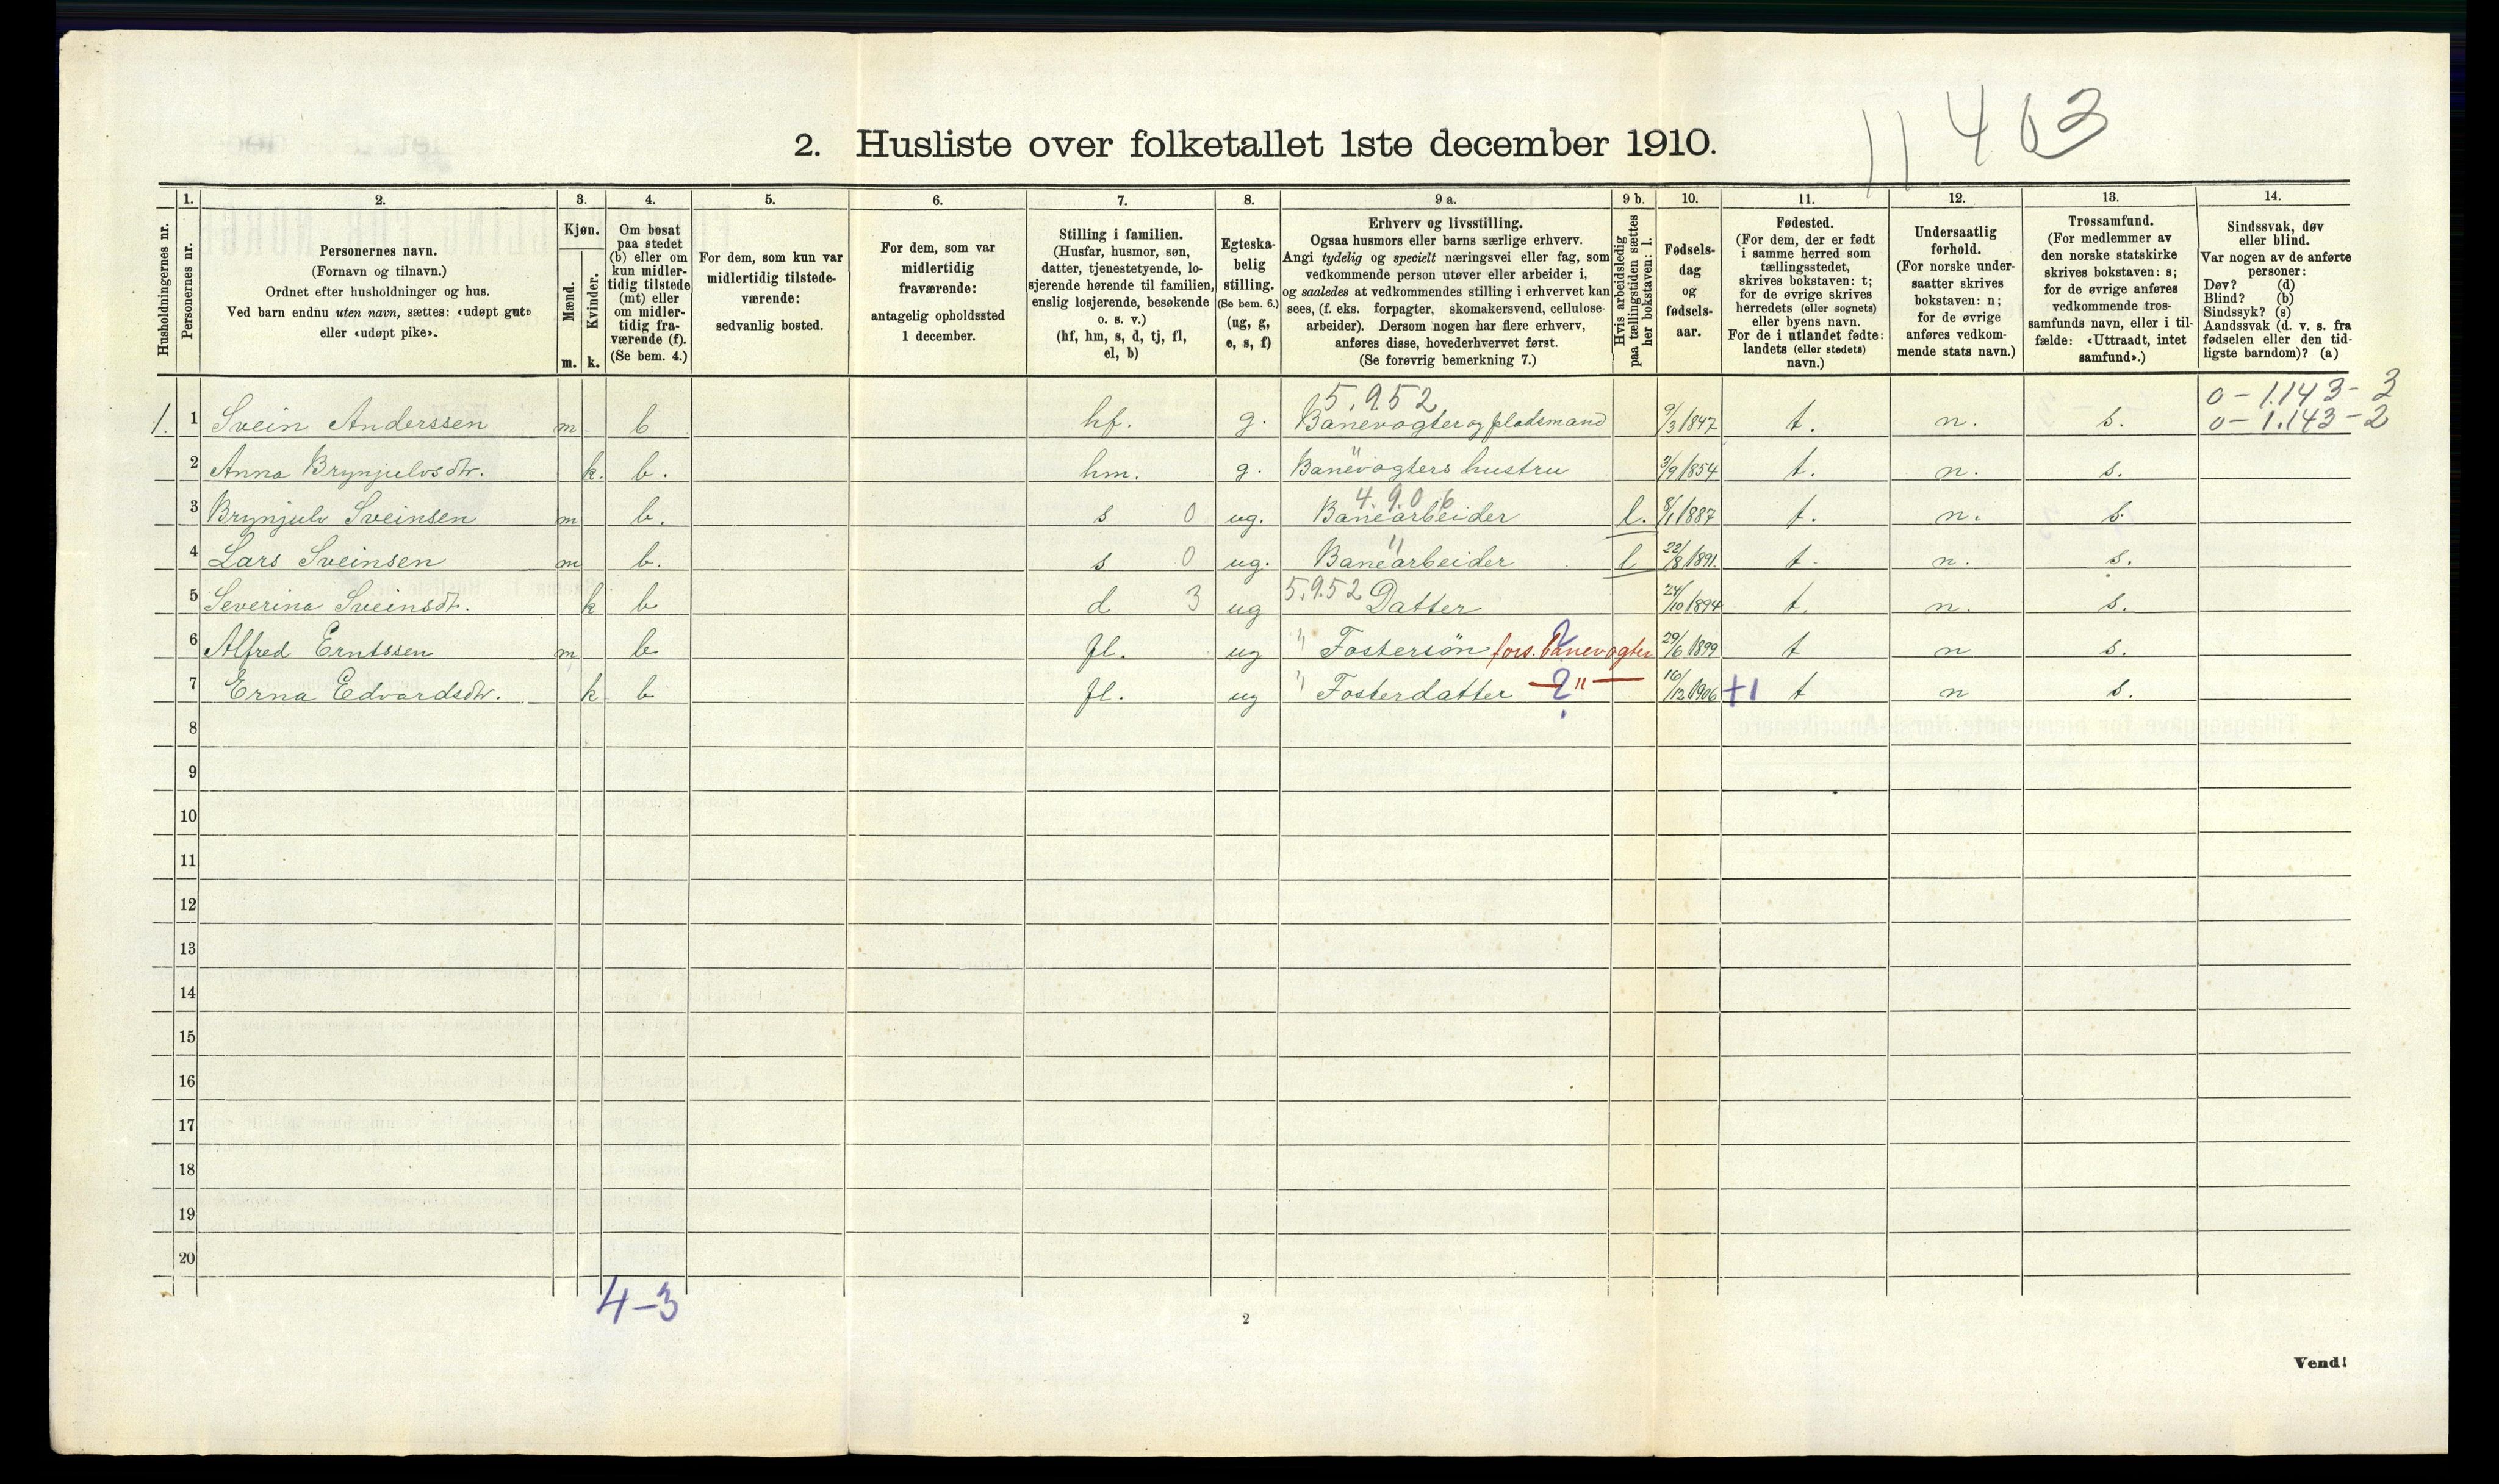 11 403
2. Husliste over folketallet 1ste december 1910.
Husholdningernes nr.
1.
Personernes nr.
2.
Personernes navn.
(Fornavn og tilnavn.)
Ordnet efter husholdninger og hus.
Ved barn endnu uten navn, sættes: «udøpt gut»
eller «udøpt pike».
3.
Kjøn.
Mænd.
Kvinder.
m. k.
4.
Om bosat
paa stedet
(b) eller om
kun midler-
tidig tilstede
(mt) eller
om midler-
tidig fra-
værende (f).
(Se bem. 4.)
5.
For dem, som kun var
midlertidig tilstede-
værende:
sedvanlig bosted.
6.
For dem, som var
midlertidig
fraværende:
antagelig opholdssted
1 december.
7.
Stilling i familien.
(Husfar, husmor, søn,
datter, tjenestetyende, lo-
sjerende hørende til familien,
enslig losjerende, besøkende
o. s. v.)
(hf, hm, s, d, tj, fl,
el, b)
8.
Egteska-
belig
stilling.
(Se bem. 6.)
(ug, g,
e, s, f)
9 a.
Erhverv og livsstilling.
Ogsaa husmors eller barns særlige erhverv.
Angi tydelig og specielt næringsvei eller fag, som
vedkommende person utøver eller arbeider i,
og saaledes at vedkommendes stilling i erhvervet kan
sees, (f. eks. forpagter, skomakersvend, cellulose-
arbeider). Dersom nogen har flere erhverv,
anføres disse, hovederhvervet først.
(Se forøvrig bemerkning 7.)
9 b.
Hvis arbeidsledig
paa tællingstiden sættes
her bokstaven: l.
10.
Fødsels-
dag
og
fødsels-
aar.
11.
Fødested.
(For dem, der er født
i samme herred som
tællingsstedet,
skrives bokstaven: t;
for de øvrige skrives
herredets (eller sognets)
eller byens navn.
For de i utlandet fødte:
landets (eller stedets)
navn.)
12.
Undersaatlig
forhold.
(For norske under-
saatter skrives
bokstaven: n;
for de øvrige
anføres vedkom-
mende stats navn.)
13.
Trossamfund.
(For medlemmer av
den norske statskirke
skrives bokstaven: s;
for de øvrige anføres
vedkommende tros-
samfunds navn, eller i til-
fælde: «Uttraadt, intet
samfund».)
14.
Sindssvak, døv
eller blind.
Var nogen av de anførte
personer:
Døv? (d)
Blind? (b)
Sindssyk? (s)
Aandssvak (d. v. s. fra
fødselen eller den tid-
ligste barndom)? (a)
5.952 0-1.143-3
1. 1 Svein Anderssen m b hf. g. Banevogter og pladsmand 9/3 1847 t. n. s. 0-1.143-2
2 Anna Brynjulvsdtr. k. b. hm. g. Banevogters hustru " 3/9 1854 t. n. s.
4.906
3 Brynjulv Sveinsen m b. s 0 ug. Banearbeider l. 8/1 1887 t. n. s.
4 Lars Sveinsen m b. s 0 ug. Banearbeider " l 22/8 1891. t. n. s.
5 Severina Sveinsdt. k b d 3 ug 5.952 Datter 24/10 1894 t. n. s.
6 Alfred Erntssen m b fl. ug " Fostersøn fors. Banevogter ? 29/6 1899 t n s.
7 Erna Edvardsdtr. k b fl. ug " Fosterdatter — " — ? 16/12 1906 +1 t n s.
8
9
10
11
12
13
14
15
16
17
18
19
20
4-3
2
Vend!